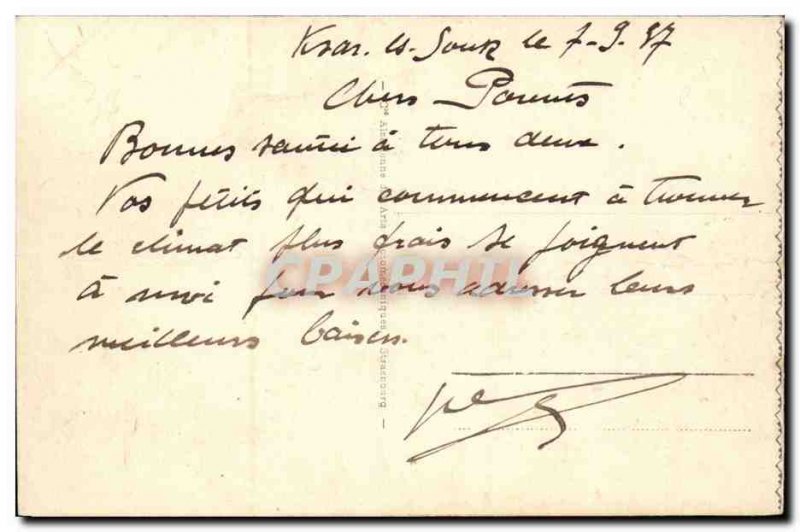 Ksar. es. Souk le 7-9.37
Chers Parents
Bonnes santé à tous deux.
Vos petits qui commencent à trouver
le climat plus frais se joignent
à moi pour vous adresser leurs
meilleurs baisers.
CPARPHIL
Cie Alsacienne des Arts Photomécaniques Strasbourg